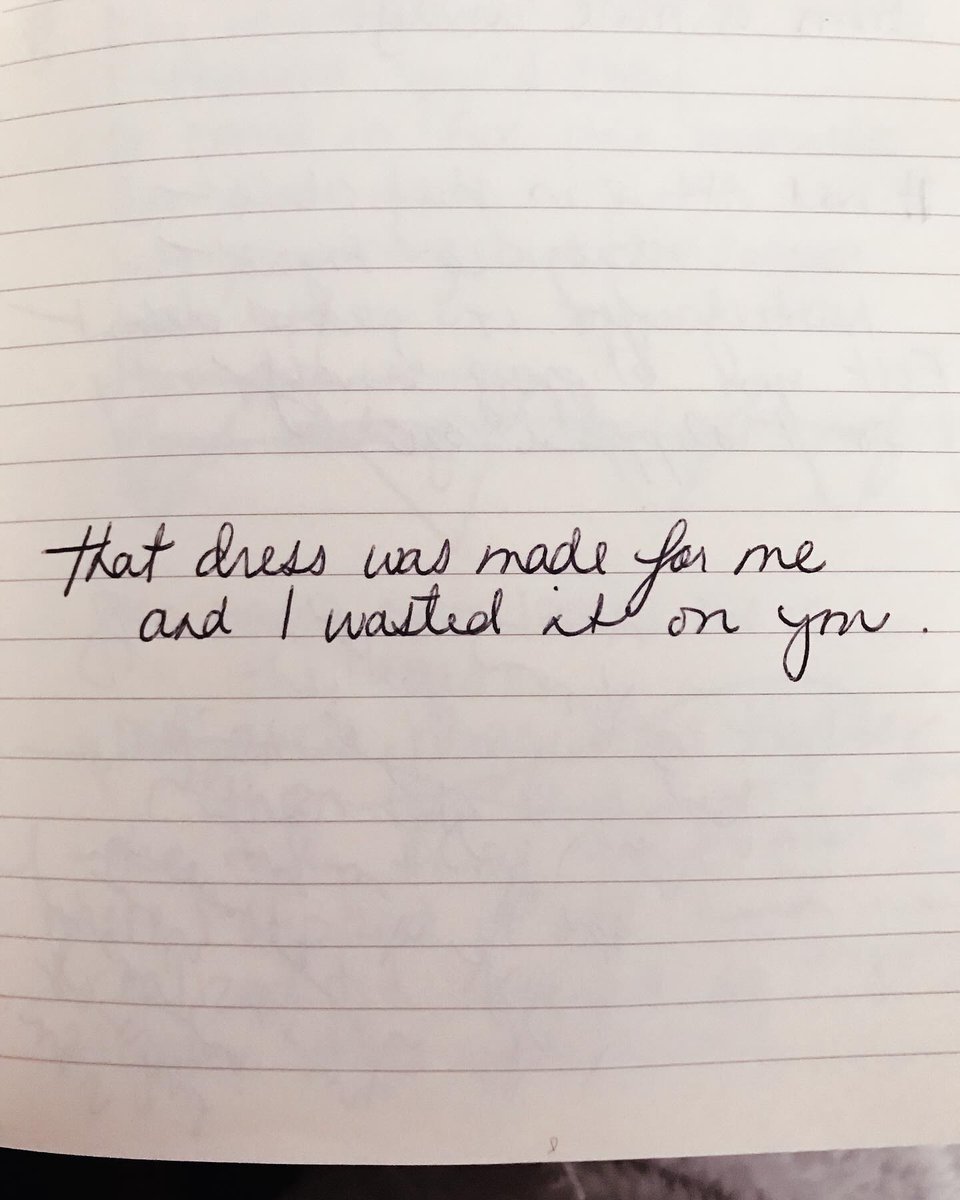 that dress was made for me
and I wasted it on you.